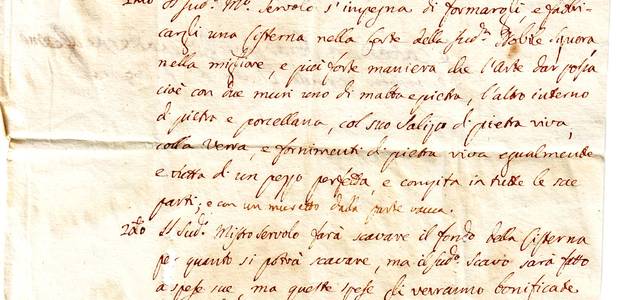 Il Sud.º M.º Servolo s'impegna di formargli, e fabbri-
cargli una Cisterna nella Corte della Sud.ª Nobile Signora
nella migliore, e più forte maniera che l'Arte dar possa
cioè con due muri uno di malta e pietra, l'altro interno
di pietra e porcellana, col suo Salizo di pietra viva,
colla Verra, e fornimenti di pietra viva egualmente
e tutta di un pezzo perfetta, e compita in tutte le sue
parti; e con un muretto dalla parte vacua.
2do Il Sud.º Mistro Servolo farà scavare il fondo della Cisterna
per quanto si potrà scavare, ma il sud.º Scavo sarà fatto
a spese sue, ma queste spese gli verranno bonificate